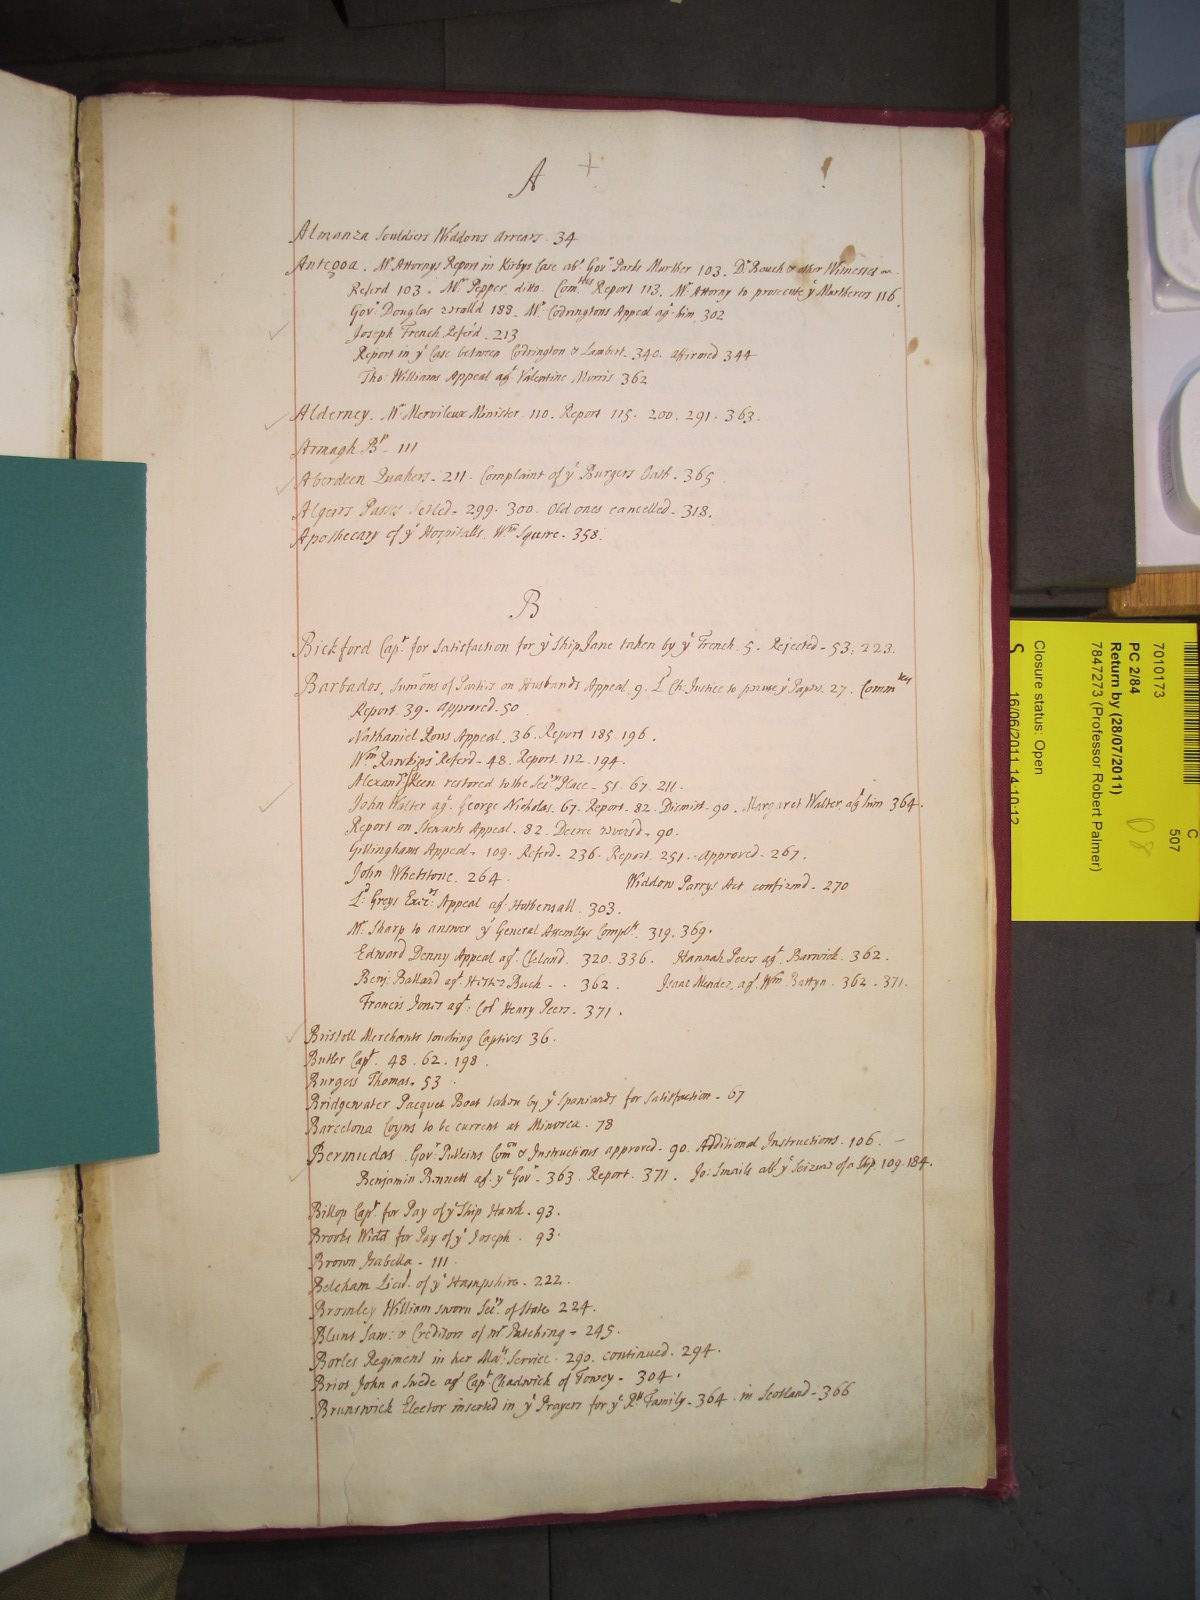 A
Almanza Souldiers Widdows Arrears. 34
Antegoa. Mr. Attorneys Report in Kirbys Case abt. Govr. Parks Murther 103. Dr. Rouch & other Witnesses
Referd 103. Mr. Pepper ditto. Comttes Report 113. Mr. Attorny to prosecute ye Murtherers 116.
Govr. Douglas recalld 188. Mr. Codringtons Appeal agt. him 302
Joseph French Referd. 213
Report in ye Case between Codrington & Lambert. 340. affirmed 344
Tho: Williams Appeal agt. Valentine Morris 362
Alderney. Mr. Mervileux Minister. 110. Report 115. 200. 291. 363.
Armagh Bp. 111
Aberdeen Quakers. 211. Complaint of ye Burgers Oath. 365
Algeirs Passes Setled. 299. 300. Old ones cancelled. 318.
Apothecary of ye Hospitalls. Wm. Squire. 358.
B
Bickford Capt. for Satisfaction for ye Ship Jane taken by ye French. 5. Rejected. 53. 223.
Barbados. Sumons of Parties on Husbands Appeal. 9. Ld. Ch. Justice to peruse ye Papers. 27. Committee
Report. 39. approved. 50
Nathaniel Rous Appeal. 36. Report 185. 196.
Wm. Rawlins Referd. 48. Report. 112. 194.
Alexandr. Skeen restored to the Secrys Place. 51. 67. 211.
John Walter agt. George Nicholas. 67. Report. 82. Dismist. 90. Margaret Walter agt him 364.
Report on Stewarts Appeal. 82. Decree reversd. 90.
Gillinghams Appeal. 109. Referd. 236. Report. 251. Approved. 267.
John Whetstone. 264. Widdow Parrys Act confirmd. 270
Ld. Greys Exrs. Appeal agt. Hothersall. 303.
Mr. Sharp to answer ye General Assemblys Complt. 319. 369.
Edward Denny Appeal agt. Cleland. 320. 336. Hannah Peers agt. Barwick. 362.
Benj. Ballard agt. Hester Buck. 362. Isaac Mendez agt. Wm. 362. 371.
Francis Jones agt. Col. Henry Peers. 371.
Bristoll Merchants touching Captives 36.
Butler Capt. 48. 62. 198.
Burgess Thomas. 53
Bridgewater Pacquet Boat taken by ye Spaniards for Satisfaction. 67
Barcelona Coyns to be current at Minorca. 78
Bermudas. Govr. Pulleins Comn. & Instructions approved. 90. Additional Instructions. 106.
Benjamin Bennett agt. ye Govr. 363. Report. 371. Jo: Smails abt ye Seizure of a Ship 109. 184.
Billop Capt. for Pay of ye Ship Hawk. 93.
Brooks Widd for Pay of ye Joseph. 93.
Brown Isabella. 111
Beleham Lieut. of ye Hampshire. 222.
Bromley William sworn Secry. of State 224.
Blunt Sam: & Creditors of mr Patching. 245.
Borles Regiment in her Matys Service. 290. continued. 294.
Brios John a Swede agt Capt. Chadwick of Fowey. 304.
Brunswick Elector inserted in ye Prayers for ye Rll Family. 364. in Scotland. 366
C
507
7010173
PC 2/84
Return by (28/07/2011)
7847273 (Professor Robert Palmer)
Closure status: Open
16/06/2011 14:10:12